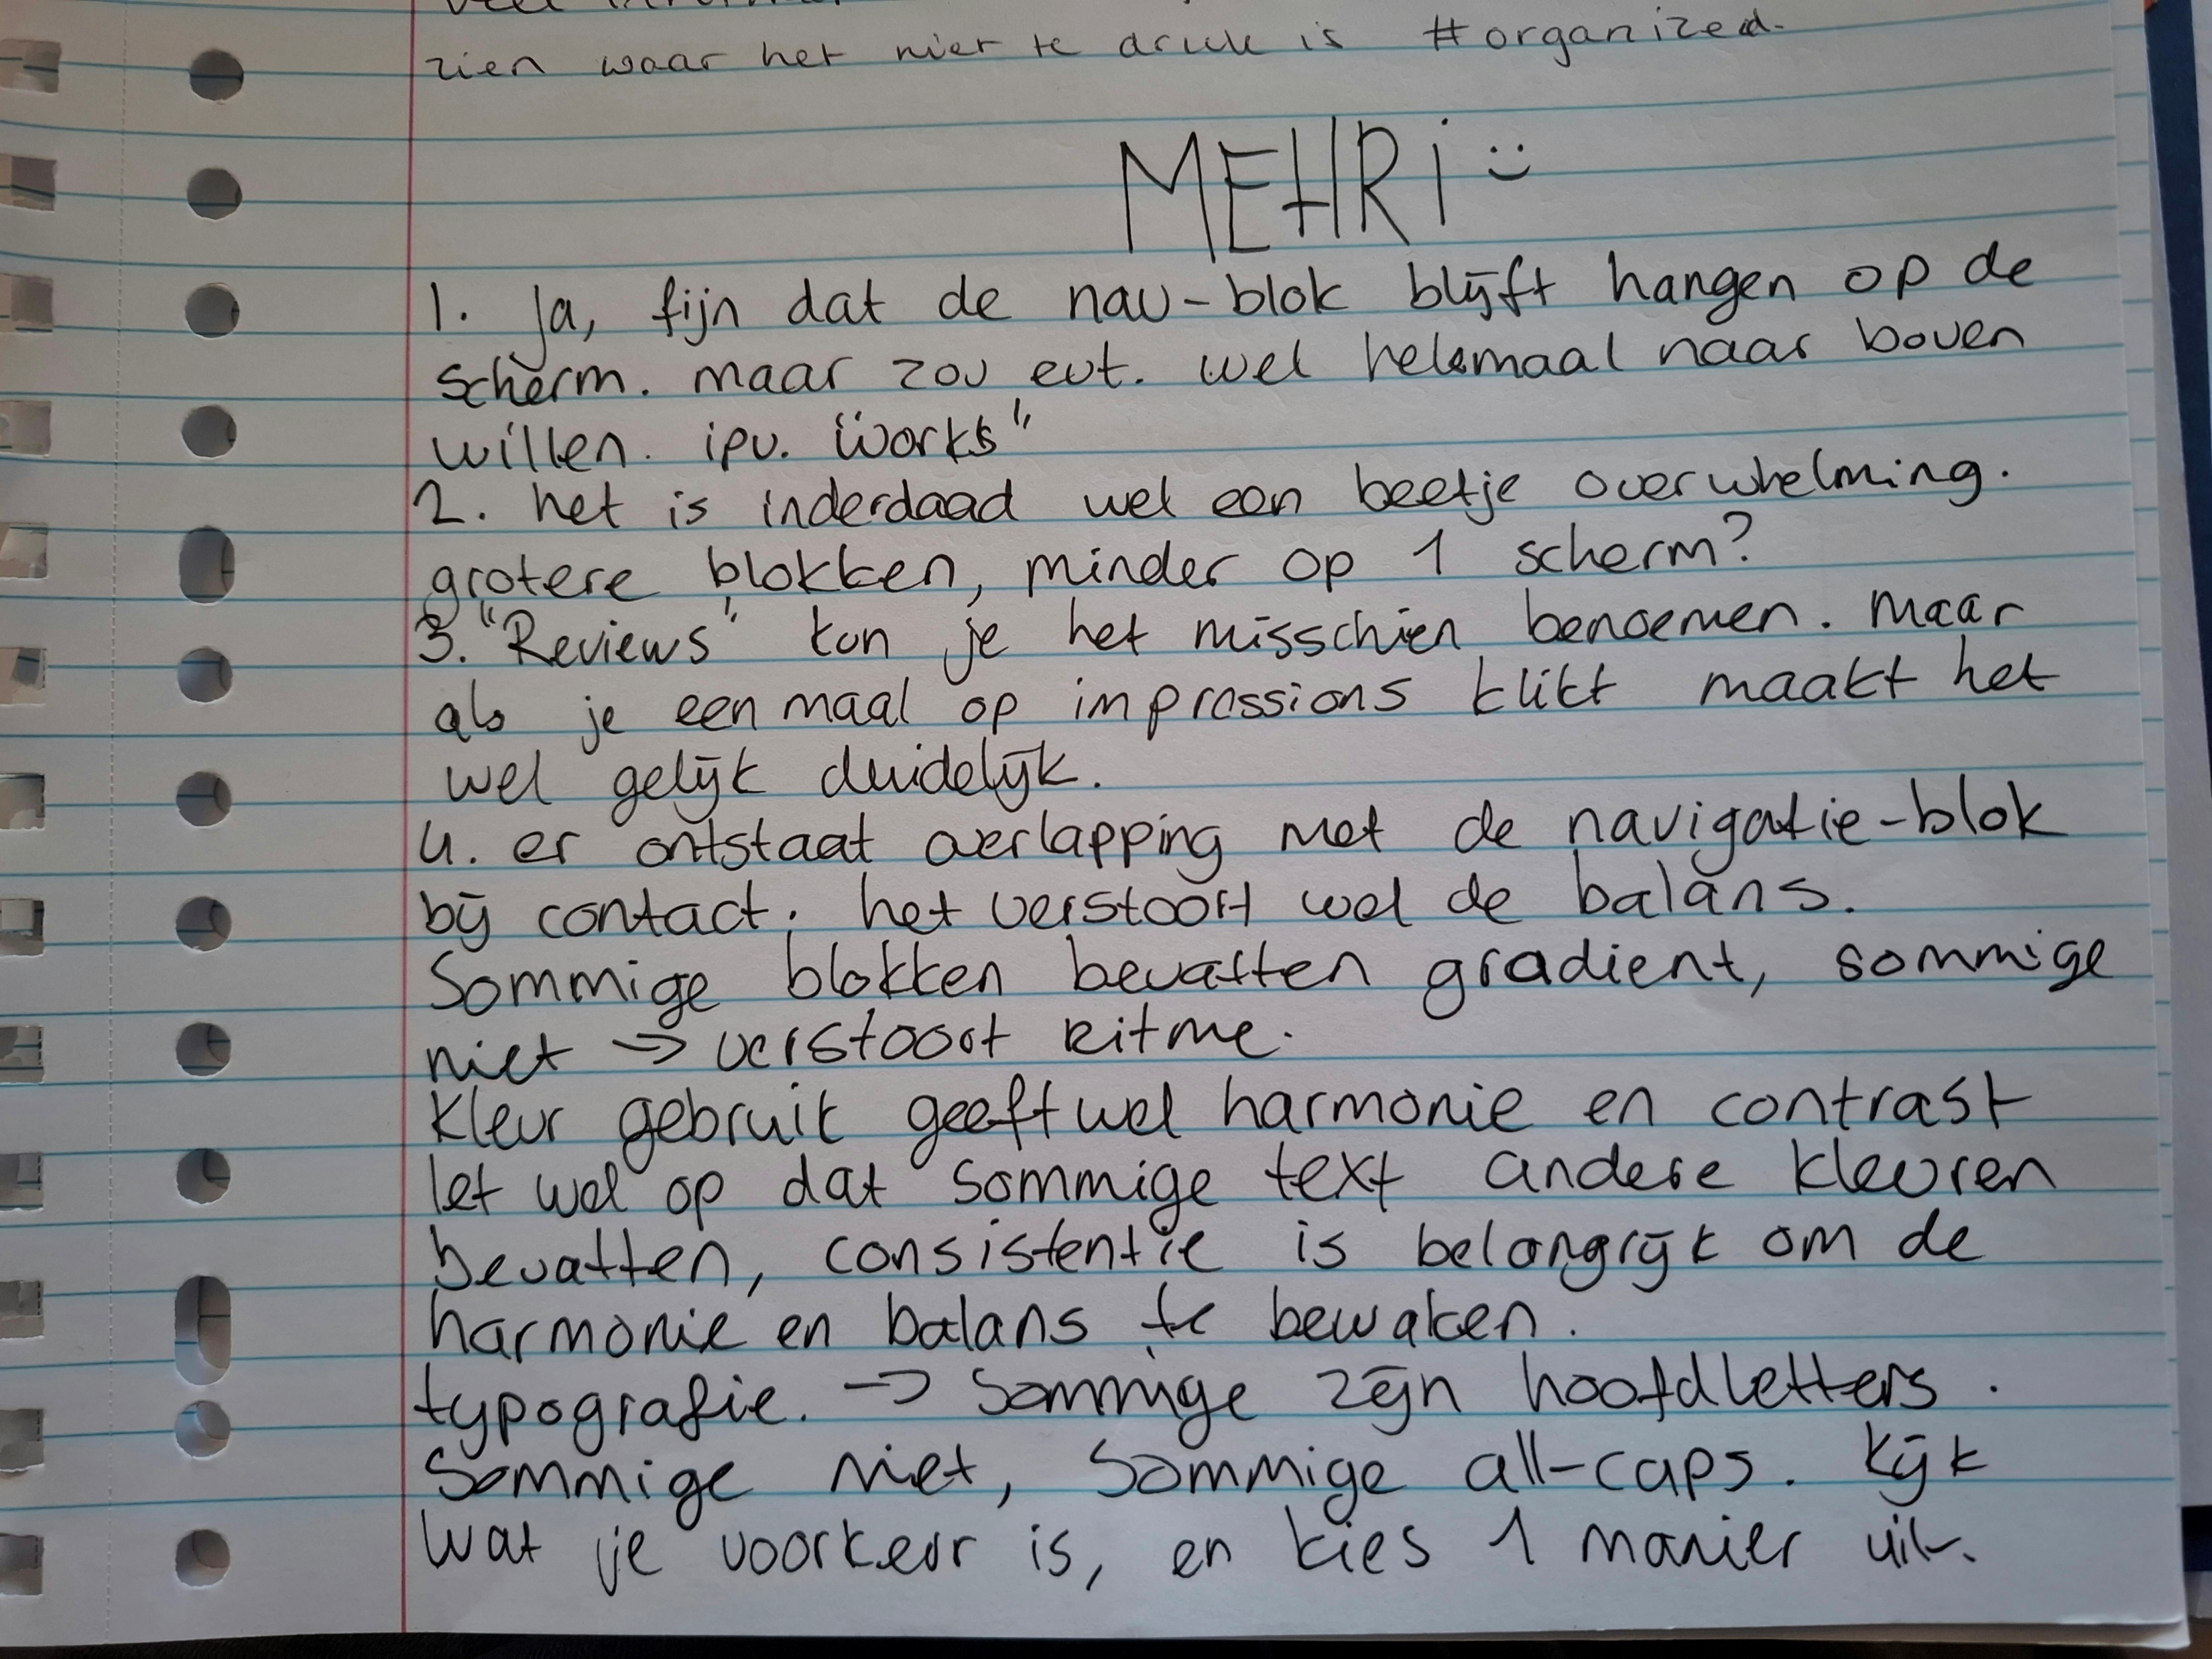 zien waar het niet te druk is #organized.
MEHRi :)
1. Ja, fijn dat de nav-blok blijft hangen op de
scherm. maar zou evt. wel helemaal naar boven
willen. ipv. "works"
2. het is inderdaad wel een beetje overwhelming.
grotere blokken, minder op 1 scherm?
3. "Reviews" kun je het misschien benoemen. Maar
als je eenmaal op impressions klikt maakt het
wel gelijk duidelijk.
4. er ontstaat overlapping met de navigatie-blok
bij contact. het verstoort wel de balans.
Sommige blokken bevatten gradient, sommige
niet → verstoort ritme.
Kleur gebruik geeft wel harmonie en contrast
let wel op dat sommige text andere kleuren
bevatten, consistentie is belangrijk om de
harmonie en balans te bewaken.
typografie. → Sommige zijn hoofdletters.
Sommige niet, Sommige all-caps. Kijk
wat je voorkeur is, en kies 1 manier uit.